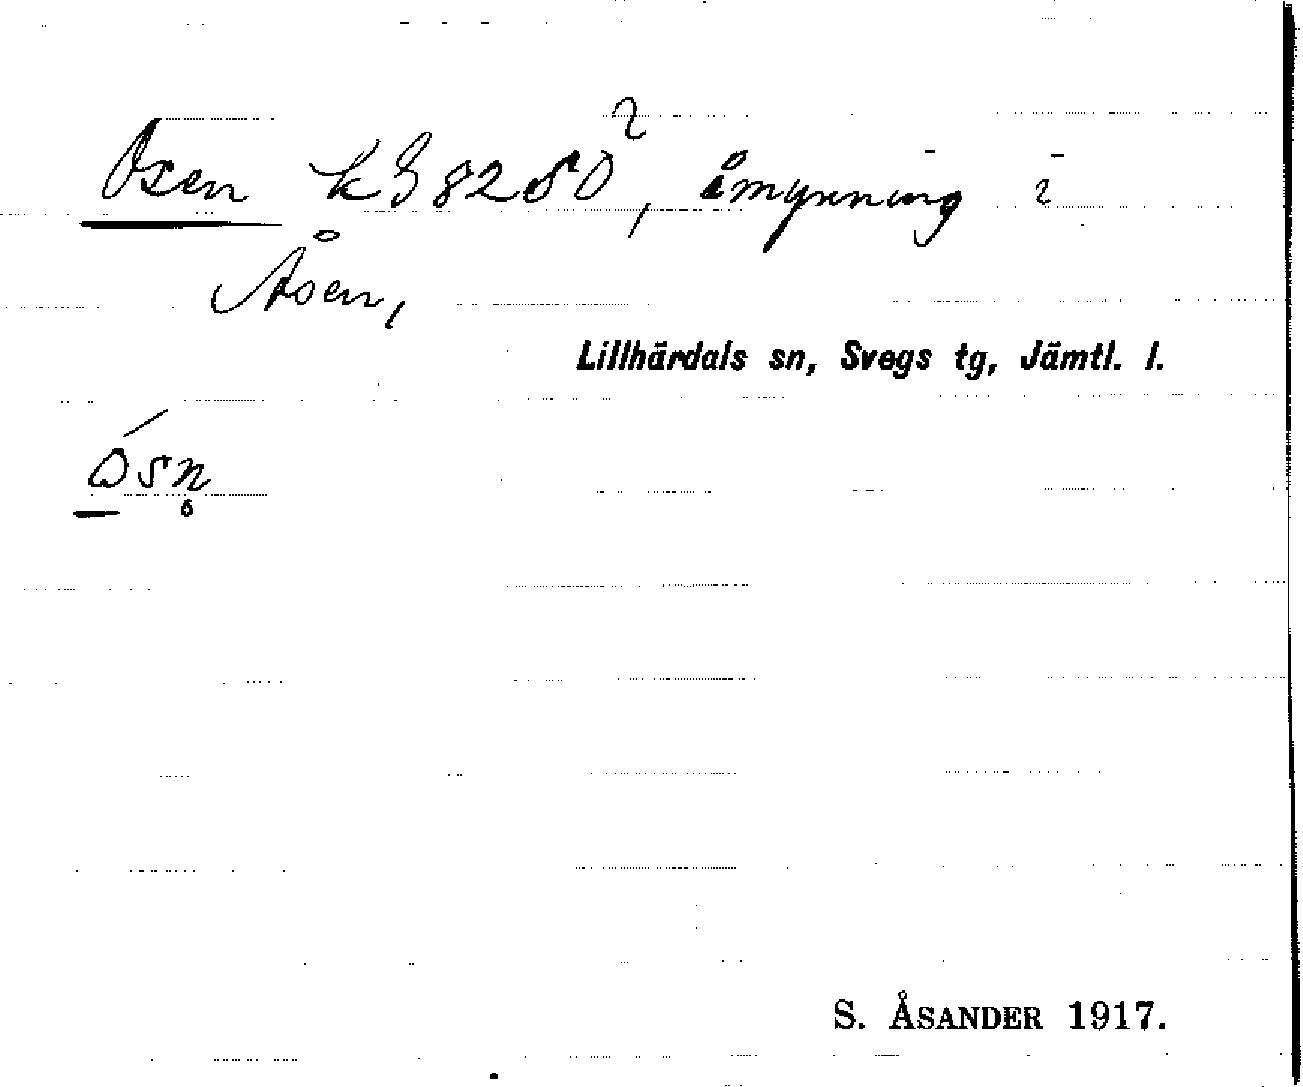 Osen k 38280², åmynning i
Åsen,
Lillhärdals sn, Svegs tg, Jämtl. l.
ósn̥
S. ÅSANDER 1917.